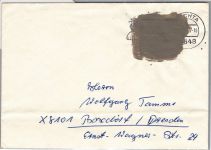 Wolfgang Tamme
X8101 Boxdorf / Dresden
Ernst-Wagner-Str. 24